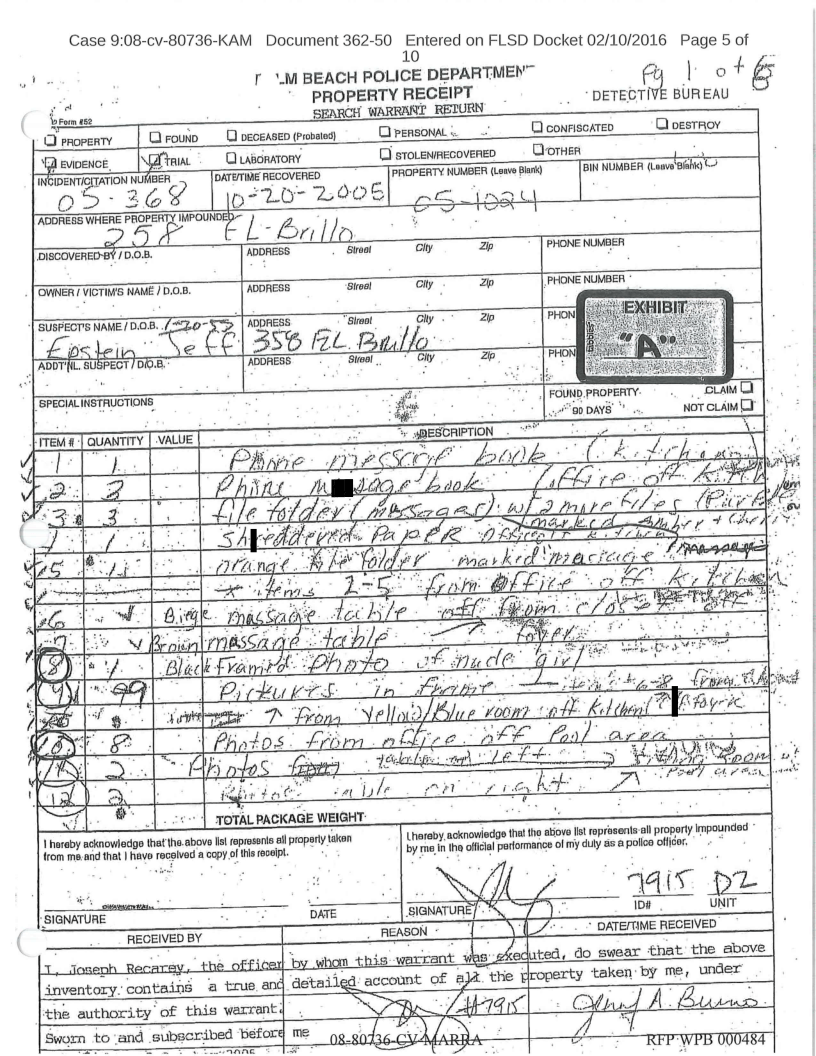 Case 9:08-cv-80736-KAM Document 362-50 Entered on FLSD Docket 02/10/2016 Page 5 of
10
LM BEACH POLICE DEPARTMEN
Pg 1 of 6
PROPERTY RECEIPT
DETECTIVE BUREAU
SEARCH WARRANT RETURN
Form #52
PROPERTY FOUND DECEASED (Probated) PERSONAL CONFISCATED DESTROY
EVIDENCE TRIAL LABORATORY STOLEN/RECOVERED OTHER
INCIDENT/CITATION NUMBER DATE/TIME RECOVERED PROPERTY NUMBER (Leave Blank) BIN NUMBER (Leave Blank)
05-368 10-20-2005 05-1024
ADDRESS WHERE PROPERTY IMPOUNDED
258 EL-Brillo
DISCOVERED BY / D.O.B. ADDRESS Street City Zip PHONE NUMBER
OWNER / VICTIM'S NAME / D.O.B. ADDRESS Street City Zip PHONE NUMBER
EXHIBIT
"A"
SUSPECT'S NAME / D.O.B. ADDRESS Street City Zip PHON
Epstein Jeff 358 EL Brillo
ADDT'NL. SUSPECT / D.O.B. ADDRESS Street City Zip PHON
SPECIAL INSTRUCTIONS FOUND PROPERTY CLAIM
90 DAYS NOT CLAIM
ITEM # QUANTITY VALUE DESCRIPTION
1 1 Phone message book (Kitchen
2 2 Phone m sage book (office off Kitch
3 3 file folder (messages) w/2 more files
marked Amber +
1 1 sh eddered PaPER
5 orange file folder marked massage
items 2-5 from Office off Kitchen
6 Biege massage table off from closet off
7 Brown massage table foyer
8 1 Black framed Photo of nude girl
9 99 Pickures in frame
from Yellow/Blue room off Kitchen
10 8 Photos from office off Pool area
11 2 Photos table on left
12 2 Photos table on right
Pool area
TOTAL PACKAGE WEIGHT
I hereby acknowledge that the above list represents all property taken
from me and that I have received a copy of this receipt.
I hereby acknowledge that the above list represents all property impounded
by me in the official performance of my duty as a police officer.
7915 D2
SIGNATURE DATE SIGNATURE ID# UNIT
RECEIVED BY REASON DATE/TIME RECEIVED
I, Joseph Recarey, the officer by whom this warrant was executed, do swear that the above
inventory contains a true and detailed account of all the property taken by me, under
the authority of this warrant.
#7915
Sworn to and subscribed before me
08-80736-CV-MARRA
RFP WPB 000484